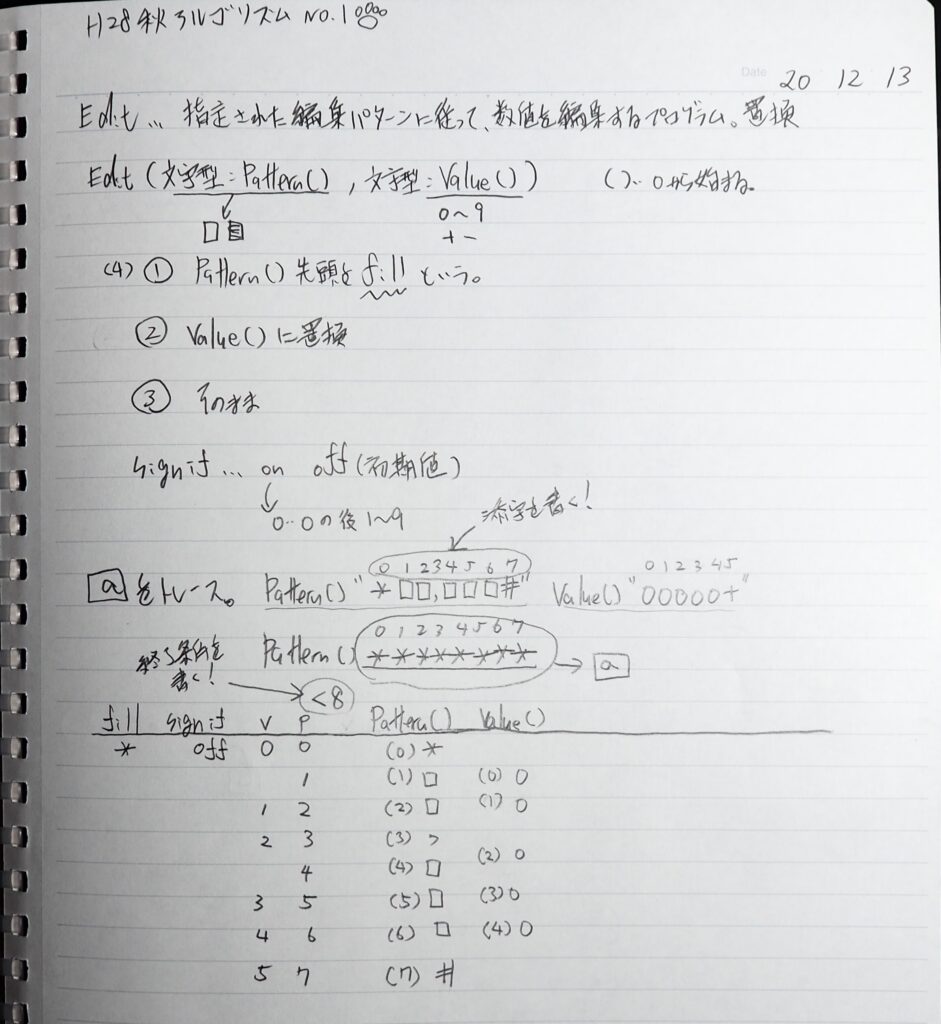 H28秋アルゴリズム No.1
Date 20 12 13
Edit… 指定された編集パターンに従って、数値を編集するプログラム。置換
Edit(文字型:Pattern(), 文字型:Value()) ()‥0から始まる。
□■ 0~9
+-
(4)① Pattern()先頭をfillという。
② Value()に置換
③ そのまま
signif… on off(初期値)
0‥0の後1~9 添字を書く!
0 1 2 3 4 5 6 7 0 1 2 3 4 5
aをトレース。 Pattern()"*□□,□□□#" Value()"00000+"
0 1 2 3 4 5 6 7
終了条件を書く! Pattern() ******** → a
<8
fill signif v P Pattern() Value()
* off 0 0 (0)*
1 (1)□ (0)0
1 2 (2)□ (1)0
2 3 (3),
4 (4)□ (2)0
3 5 (5)□ (3)0
4 6 (6)□ (4)0
5 7 (7)#